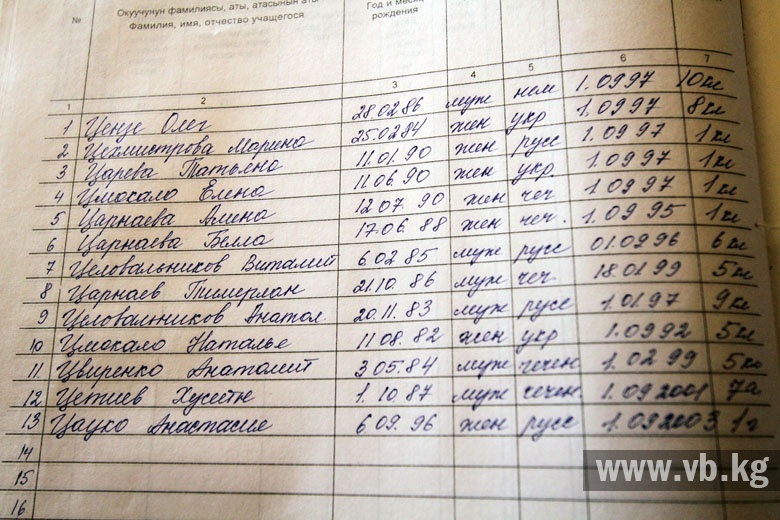 № Окуучунун фамилиясы, аты, атасынын аты Год и месяц
Фамилия, имя, отчество учащегося рождения
1 2 3 4 5 6 7
1 Цензе Олег 28.02 86 муж нем 1.0997 10кл
2 Цехмистрова Марина 25.0284 жен укр 1.0997 8кл
3 Царева Татьяна 11.01.90 жен русс 1.09 97 1кл
4 Цмокало Елена 11.06.90 жен укр. 1.0997 1кл
5 Царнаева Амина 12 07. 90 жен чеч 1.0997 1кл
6 Царнаева Бэла 17.06. 88 жен чеч. 1.09 95 1кл
7 Целовальников Виталий 6.02 85 муж русс 01.0996 6кл
8 Царнаев Тимерлан 21.10. 86 муж чеч 18.01 99 5кл
9 Целовальников Анатол. 20.11.83 муж русс 1.01.97 9кл
10 Цмокало Наталье 11 08. 82 жен укр 1.0992 5кл
11 Цвиренко Анатолий 3 05.84 муж чечен. 1.02 99 5кл
12 Цетиев Хусейн 1. 10. 87 муж чечен. 1.092001 7а
13 Цауко Анастасия 6.09. 96 жен русс 1.092003 1г
14
15
16
www.vb.kg